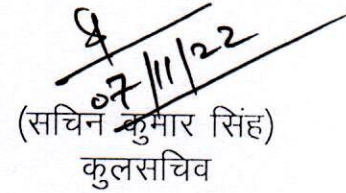 07/11/22
(सचिन कुमार सिंह)
कुलसचिव